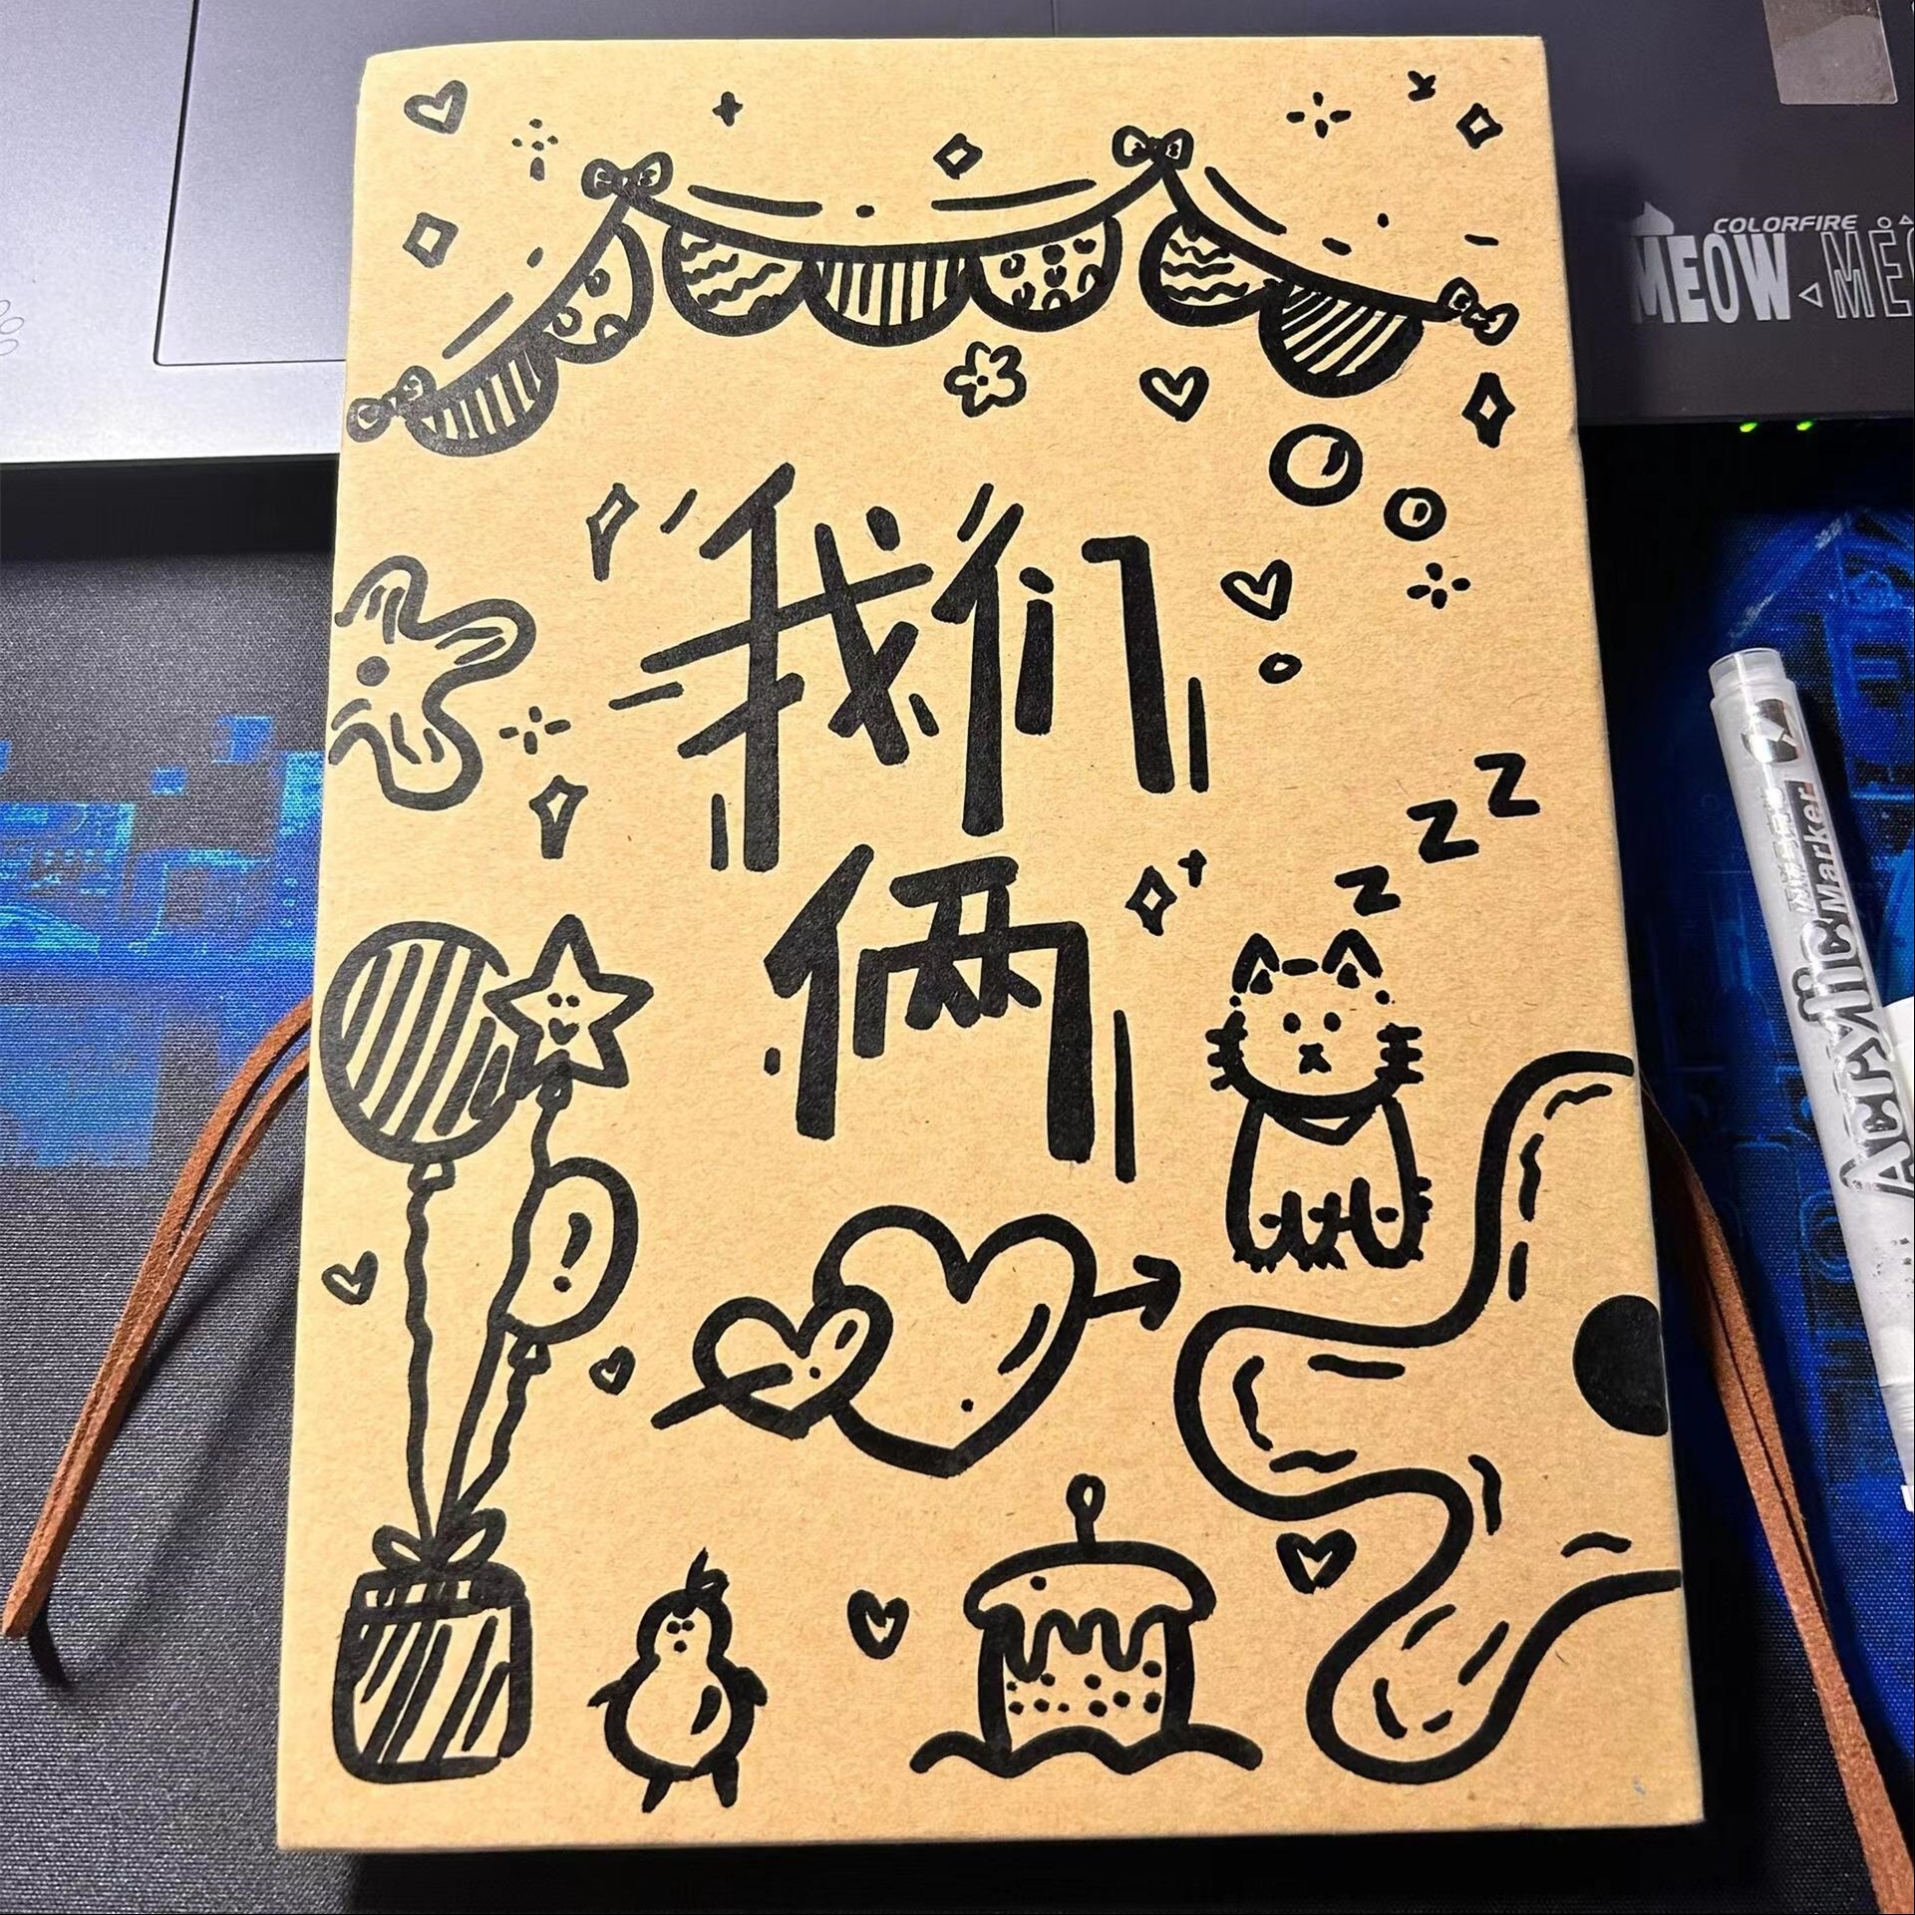 COLORFIRE
MEOW
我们
俩
z
z
z
Acrylic Marker